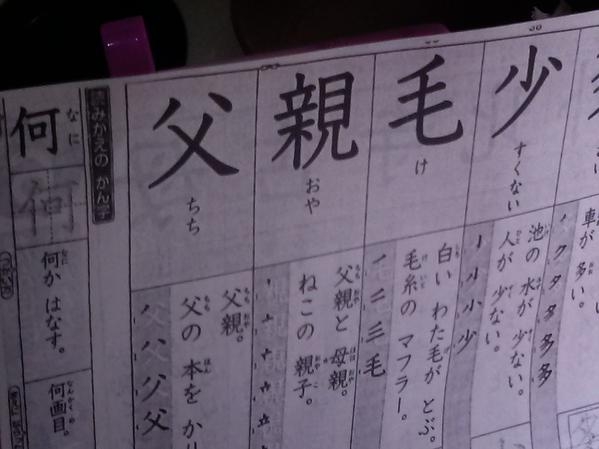 車が 多い。
ノ ク タ 多 多 多
少
すくない
池の 水が 少ない。
人が 少ない。
亅 小 小 少
毛
け
白い わた毛が とぶ。
毛糸の マフラー。
一 二 三 毛
親
おや
父親と 母親。
ねこの 親子。
父
ちち
父親。
父の 本を か
ハ 父 父
読みかえの かん字
何
なに
何
何か はなす。
何画目。